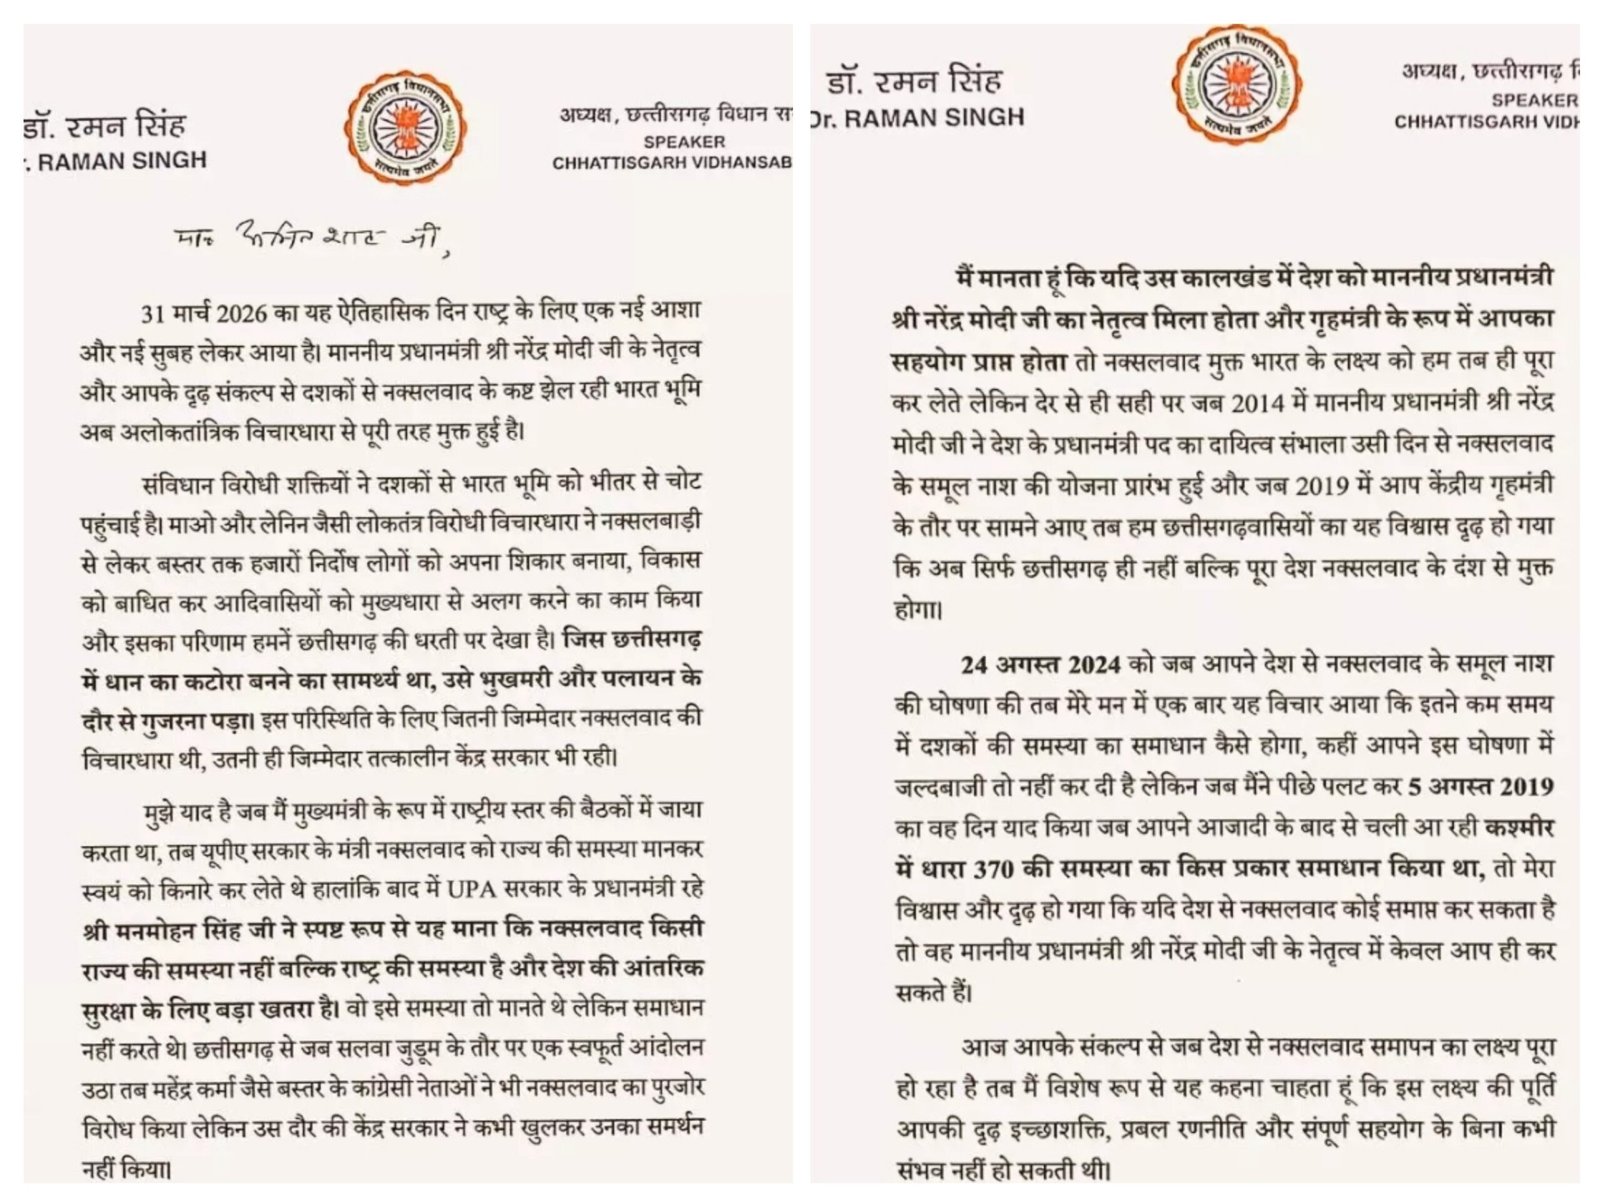 डॉ. रमन सिंह
r. RAMAN SINGH
छत्तीसगढ़ विधानसभा
सत्यमेव जयते
अध्यक्ष, छत्तीसगढ़ विधान स
SPEAKER
CHHATTISGARH VIDHANSAB
मान. अमित शाह जी,
31 मार्च 2026 का यह ऐतिहासिक दिन राष्ट्र के लिए एक नई आशा
और नई सुबह लेकर आया है। माननीय प्रधानमंत्री श्री नरेंद्र मोदी जी के नेतृत्व
और आपके दृढ़ संकल्प से दशकों से नक्सलवाद के कष्ट झेल रही भारत भूमि
अब अलोकतांत्रिक विचारधारा से पूरी तरह मुक्त हुई है।
संविधान विरोधी शक्तियों ने दशकों से भारत भूमि को भीतर से चोट
पहुंचाई है। माओ और लेनिन जैसी लोकतंत्र विरोधी विचारधारा ने नक्सलबाड़ी
से लेकर बस्तर तक हजारों निर्दोष लोगों को अपना शिकार बनाया, विकास
को बाधित कर आदिवासियों को मुख्यधारा से अलग करने का काम किया
और इसका परिणाम हमनें छत्तीसगढ़ की धरती पर देखा है। जिस छत्तीसगढ़
में धान का कटोरा बनने का सामर्थ्य था, उसे भुखमरी और पलायन के
दौर से गुजरना पड़ा। इस परिस्थिति के लिए जितनी जिम्मेदार नक्सलवाद की
विचारधारा थी, उतनी ही जिम्मेदार तत्कालीन केंद्र सरकार भी रही।
मुझे याद है जब मैं मुख्यमंत्री के रूप में राष्ट्रीय स्तर की बैठकों में जाया
करता था, तब यूपीए सरकार के मंत्री नक्सलवाद को राज्य की समस्या मानकर
स्वयं को किनारे कर लेते थे हालांकि बाद में UPA सरकार के प्रधानमंत्री रहे
श्री मनमोहन सिंह जी ने स्पष्ट रूप से यह माना कि नक्सलवाद किसी
राज्य की समस्या नहीं बल्कि राष्ट्र की समस्या है और देश की आंतरिक
सुरक्षा के लिए बड़ा खतरा है। वो इसे समस्या तो मानते थे लेकिन समाधान
नहीं करते थे। छत्तीसगढ़ से जब सलवा जुडूम के तौर पर एक स्वफूर्त आंदोलन
उठा तब महेंद्र कर्मा जैसे बस्तर के कांग्रेसी नेताओं ने भी नक्सलवाद का पुरजोर
विरोध किया लेकिन उस दौर की केंद्र सरकार ने कभी खुलकर उनका समर्थन
नहीं किया।
डॉ. रमन सिंह
Dr. RAMAN SINGH
छत्तीसगढ़ विधानसभा
सत्यमेव जयते
अध्यक्ष, छत्तीसगढ़ वि
SPEAKER
CHHATTISGARH VIDH
मैं मानता हूं कि यदि उस कालखंड में देश को माननीय प्रधानमंत्री
श्री नरेंद्र मोदी जी का नेतृत्व मिला होता और गृहमंत्री के रूप में आपका
सहयोग प्राप्त होता तो नक्सलवाद मुक्त भारत के लक्ष्य को हम तब ही पूरा
कर लेते लेकिन देर से ही सही पर जब 2014 में माननीय प्रधानमंत्री श्री नरेंद्र
मोदी जी ने देश के प्रधानमंत्री पद का दायित्व संभाला उसी दिन से नक्सलवाद
के समूल नाश की योजना प्रारंभ हुई और जब 2019 में आप केंद्रीय गृहमंत्री
के तौर पर सामने आए तब हम छत्तीसगढ़वासियों का यह विश्वास दृढ़ हो गया
कि अब सिर्फ छत्तीसगढ़ ही नहीं बल्कि पूरा देश नक्सलवाद के दंश से मुक्त
होगा।
24 अगस्त 2024 को जब आपने देश से नक्सलवाद के समूल नाश
की घोषणा की तब मेरे मन में एक बार यह विचार आया कि इतने कम समय
में दशकों की समस्या का समाधान कैसे होगा, कहीं आपने इस घोषणा में
जल्दबाजी तो नहीं कर दी है लेकिन जब मैंने पीछे पलट कर 5 अगस्त 2019
का वह दिन याद किया जब आपने आजादी के बाद से चली आ रही कश्मीर
में धारा 370 की समस्या का किस प्रकार समाधान किया था, तो मेरा
विश्वास और दृढ़ हो गया कि यदि देश से नक्सलवाद कोई समाप्त कर सकता है
तो वह माननीय प्रधानमंत्री श्री नरेंद्र मोदी जी के नेतृत्व में केवल आप ही कर
सकते हैं।
आज आपके संकल्प से जब देश से नक्सलवाद समापन का लक्ष्य पूरा
हो रहा है तब मैं विशेष रूप से यह कहना चाहता हूं कि इस लक्ष्य की पूर्ति
आपकी दृढ़ इच्छाशक्ति, प्रबल रणनीति और संपूर्ण सहयोग के बिना कभी
संभव नहीं हो सकती थी।